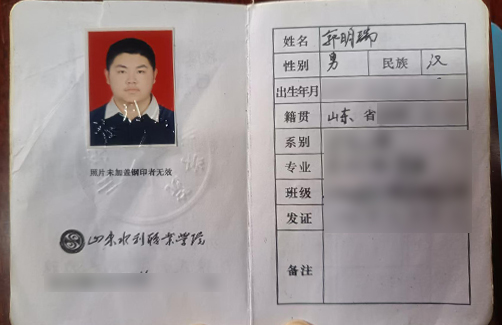 照片未加盖钢印者无效
山东水利职业学院
姓名 郭明瑞
性别 男 民族 汉
出生年月
籍贯 山东省
系别
专业
班级
发证
备注